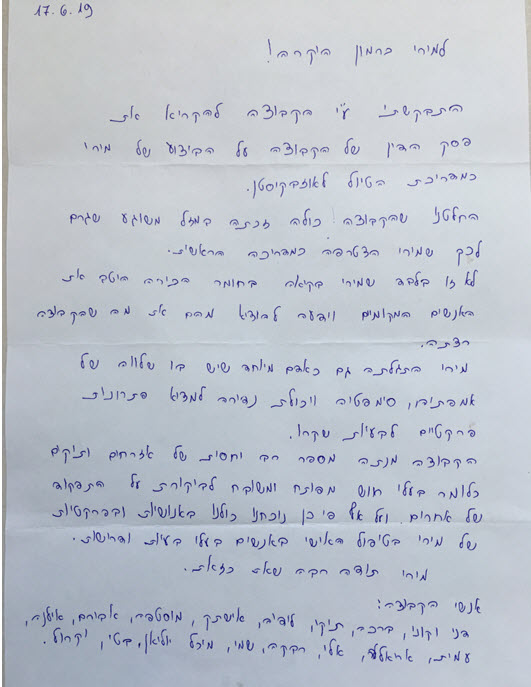 17.6.19
למירי כרמון היקרה!
התבקשתי ע"י הקבוצה להקריא את
פסק הדין של הקבוצה על הביצוע של מירי
כמדריכת הטיול לאוזבקיסטן.
החלטנו שהקבוצה כולה זכתה במזל משוגע שגרם
לכך שמירי הצטרפה כמדריכה הראשית.
לא זו בלבד שמירי בקיאה בחומר הכירה היטב את
האנשים המקומיים וידעה להוציא מהם את מה שהקבוצה
רצתה.
מירי התגלתה גם כאדם מיוחד שיש בו שלווה של
אמפתיה, סימפטיה ויכולת נדירה למצוא פתרונות
פרקטיים לבעיות שקרו.
הקבוצה מנתה מספר רב יחסית של אזרחים ותיקים
כלומר בעלי חוש מפותח ומשובח לביקורת על התפקוד
של אחרים ועל אף פי כן נוכחנו כולנו באנושיות ובפרקטיות
של מירי בטיפול האישי באנשים בעלי בעיות ודרישות.
מירי תודה רבה שאת כזאת.
אנשי הקבוצה:
דני וקוני, ברכה, תיקי, ליפיב, אישתק, מוסטפה, אבירם, אילנה,
עמית, אריאלה, אלי, רבקה, שמי, מיכל יוליאן, בטי, וקרול.